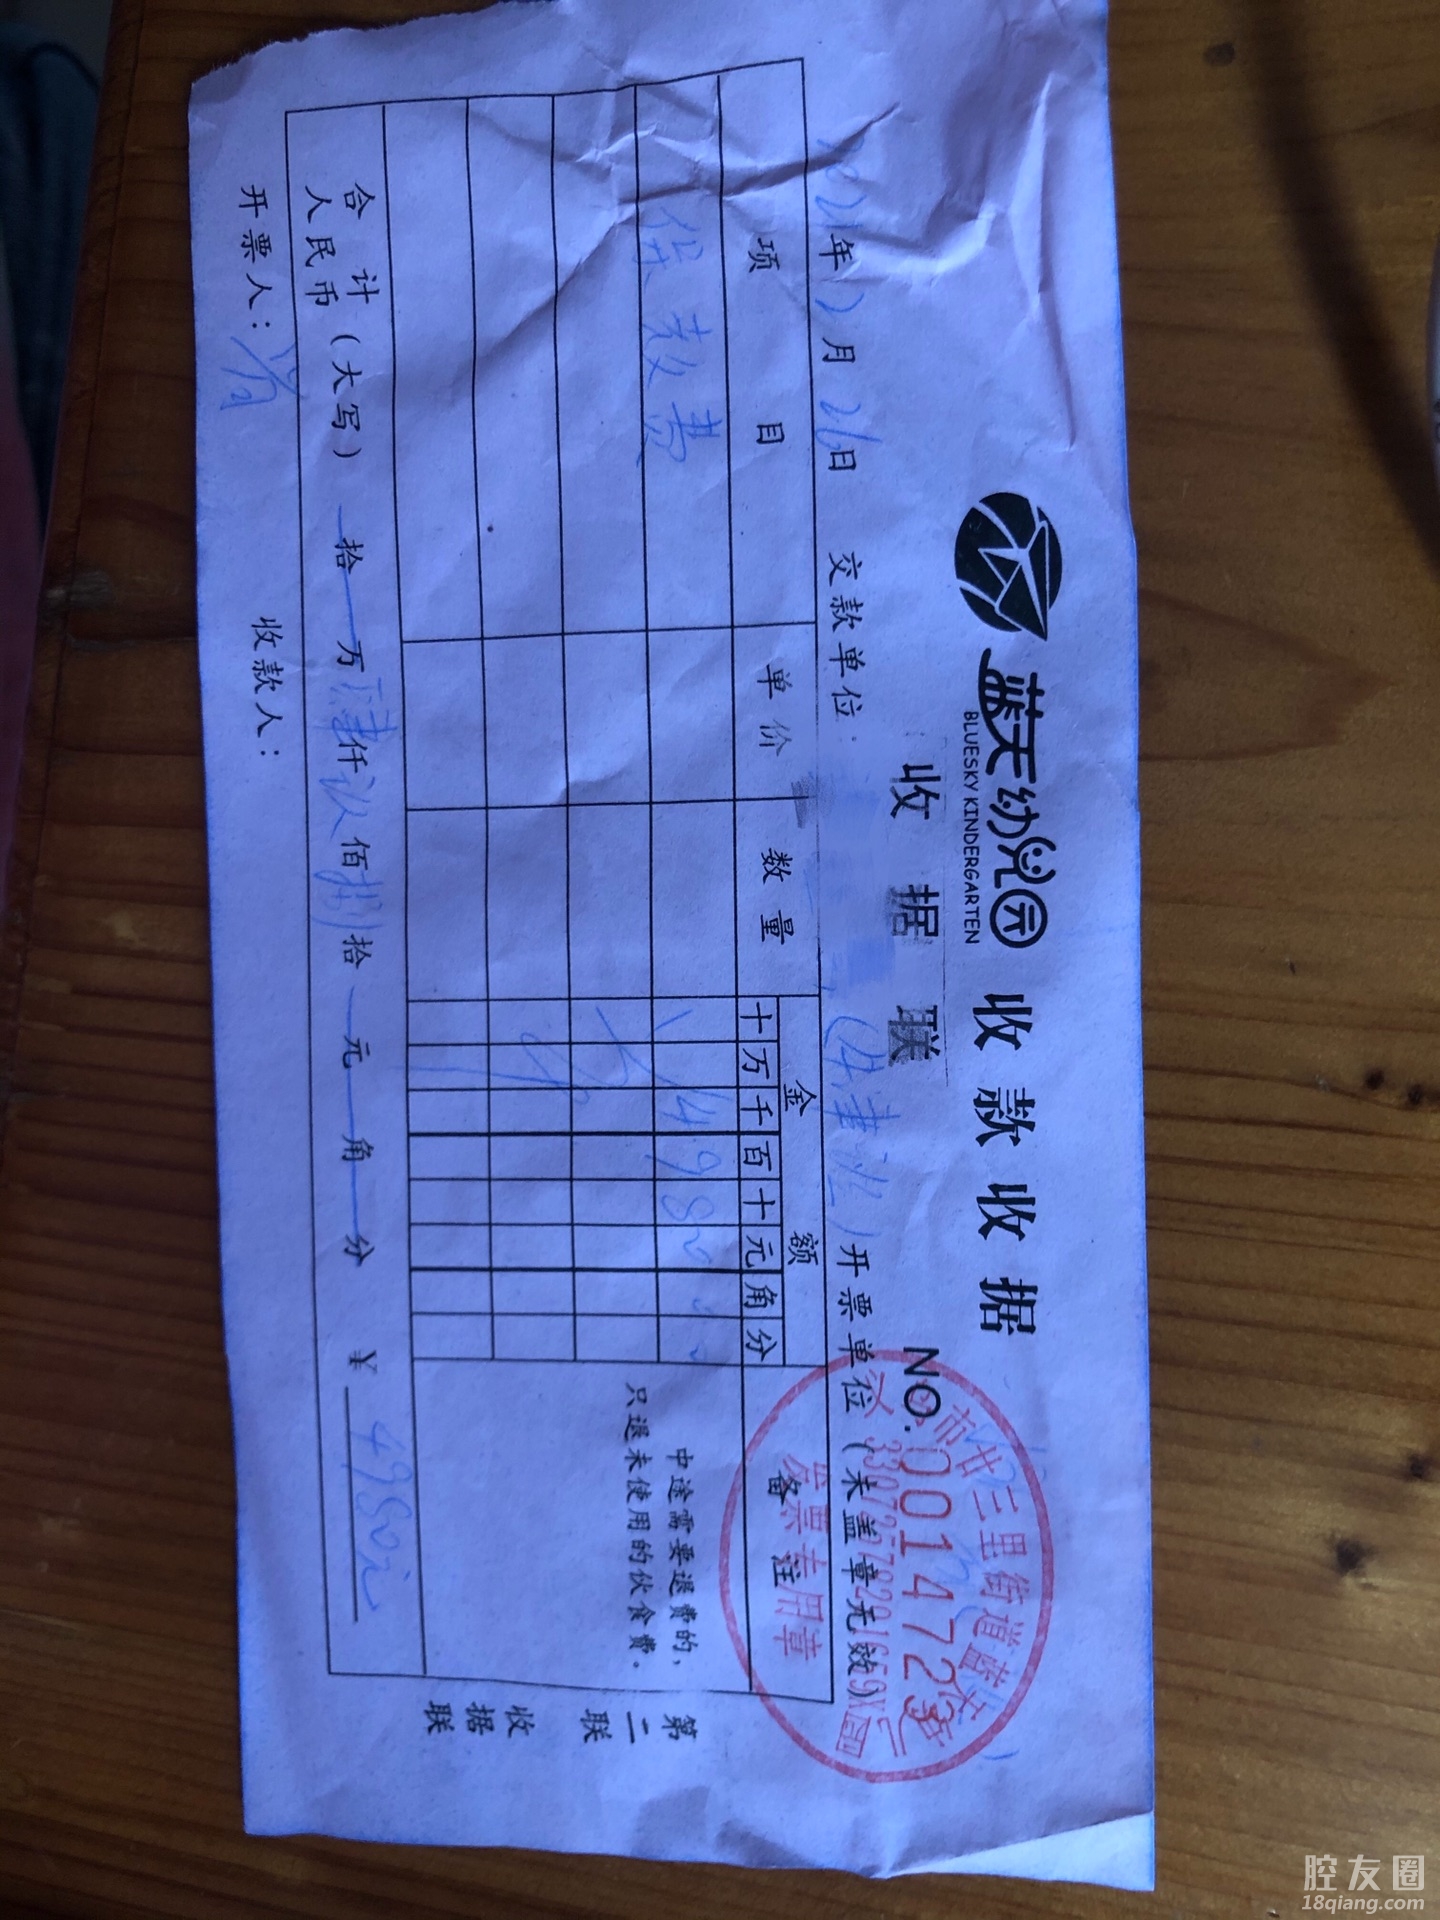 蓝天幼儿园 收款收据
BLUESKY KINDERGARTEN
收据联
NO. 0014723
2021年2月26日 交款单位: 开票单位(未盖章无效)
项目 单价 数量 金额 备注
十万千百十元角分
保教费 4980 00
中途需要退费的,
只退未使用的伙食费。
合计(大写)
人民币 拾 万 仟 佰捌拾 元 角 分 ¥ 4980元
开票人: 收款人:
第二联 收据联
市廿三里街道蓝天
发票专用章
腔友圈
18qiang.com